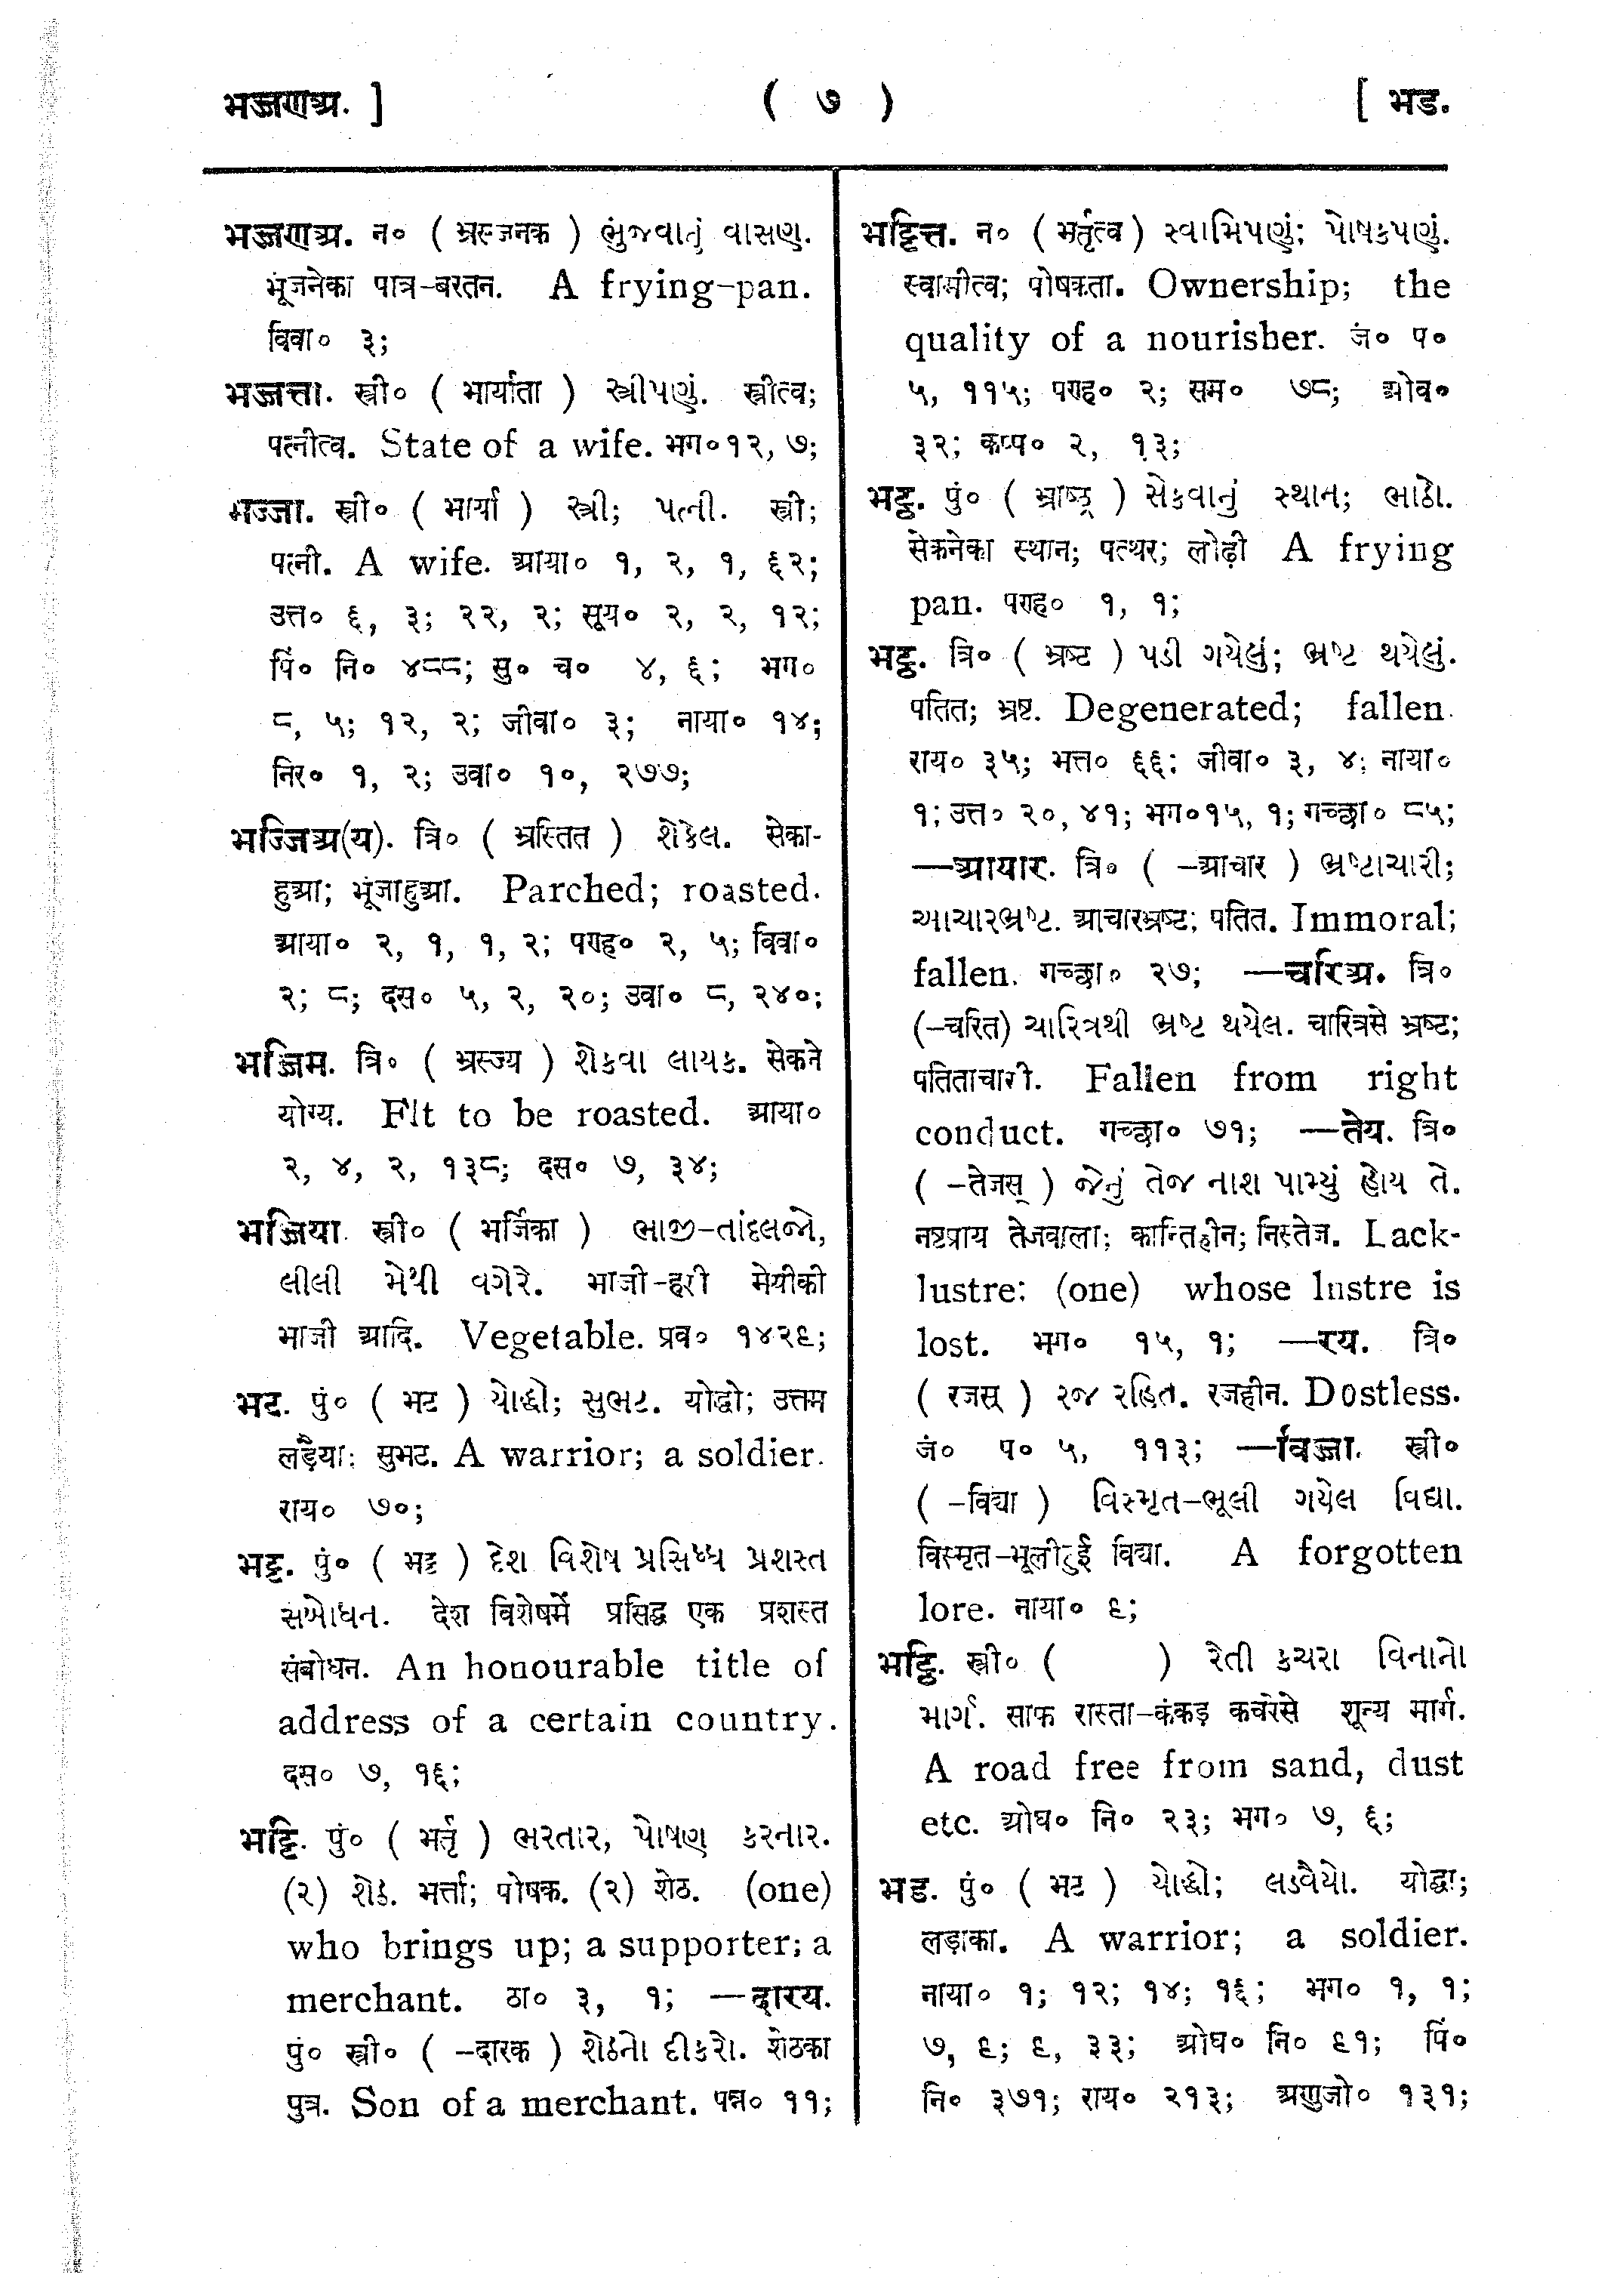 भज्जणअ. ] ( ७ ) [ भड.
भज्जणअ. न० ( भ्रस्जनक ) ભુંજવાનું વાસણ.
भूंजनेका पात्र-बरतन. A frying-pan.
विवा० ३;
भज्जत्ता. स्त्री० ( भार्याता ) સ્ત્રીપણું. स्त्रीत्व;
पत्नीत्व. State of a wife. भग० १२, ७;
भज्जा. स्त्री० ( भार्या ) સ્ત્રી; પત્ની. स्त्री;
पत्नी. A wife. आया० १, २, १, ६२;
उत्त० ६, ३; २२, २; सूय० २, २, १२;
पिं० नि० ४८८; सु० च० ४, ६; भग०
८, ५; १२, २; जीवा० ३; नाया० १४;
निर० १, २; उवा० १०, २७७;
भज्जिअ(य). त्रि० ( भ्रस्तित ) શેકેલ. सेका-
हुआ; भूंजाहुआ. Parched; roasted.
आया० २, १, १, २; पण्ह० २, ५; विवा०
२; ८; दस० ५, २, २०; उवा० ८, २४०;
भज्जिम. त्रि० ( भ्रस्ज्य ) શેકવા લાયક. सेकने
योग्य. Fit to be roasted. आया०
२, ४, २, १३८; दस० ७, ३४;
भज्जिया. स्त्री० ( भर्जिका ) ભાજી-તાંદલજો,
લીલી મેથી વગેરે. भाजी-हरी मेथीकी
भाजी आदि. Vegetable. प्रव० १४२६;
भट. पुं० ( भट ) યોદ્ધો; સુભટ. योद्धो; उत्तम
लड़ैया; सुभट. A warrior; a soldier.
राय० ७०;
भट्ट. पुं० ( भट्ट ) દેશ વિશેષ પ્રસિધ્ધ પ્રશસ્ત
સંબોધન. देश विशेषमें प्रसिद्ध एक प्रशस्त
संबोधन. An honourable title of
address of a certain country.
दस० ७, १६;
भट्टि. पुं० ( भर्तृ ) ભરતાર, પોષણ કરનાર.
(२) શેઠ. भर्त्ता; पोषक. (२) शेठ. (one)
who brings up; a supporter; a
merchant. ठा० ३, १; —दारय.
पुं० स्त्री० ( -दारक ) શેઠનો દીકરો. शेठका
पुत्र. Son of a merchant. पन्न० ११;
भट्टित्त. न० ( भर्तृत्व ) સ્વામિપણું; પોષકપણું.
स्वामीत्व; पोषकता. Ownership; the
quality of a nourisher. जं० प०
५, ११५; पण्ह० २; सम० ७८; ओव०
३२; कप्प० २, १३;
भट्ठ. पुं० ( भ्राष्ट्र ) સેકવાનું સ્થાન; ભાઠો.
सेकनेका स्थान; पत्थर; लोढ़ी A frying
pan. पण्ह० १, १;
भट्ठ. त्रि० ( भ्रष्ट ) પડી ગયેલું; ભ્રષ્ટ થયેલું.
पतित; भ्रष्ट. Degenerated; fallen.
राय० ३५; भत्त० ६६; जीवा० ३, ४; नाया०
१; उत्त० २०, ४१; भग० १५, १; गच्छा० ८५;
—आयार. त्रि० ( -आचार ) ભ્રષ્ટાચારી;
આચારભ્રષ્ટ. आचारभ्रष्ट; पतित. Immoral;
fallen. गच्छा० २७; —चरिअ. त्रि०
(-चरित) ચારિત્રથી ભ્રષ્ટ થયેલ. चारित्रसे भ्रष्ट;
पतिताचारी. Fallen from right
conduct. गच्छा० ७१; —तेय. त्रि०
( -तेजस् ) જેનું તેજ નાશ પામ્યું હોય તે.
नष्टप्राय तेजवाला; कान्तिहीन; निस्तेज. Lack-
lustre: (one) whose lustre is
lost. भग० १५, १; —रय. त्रि०
( रजस् ) રજ રહિત. रजहीन. Dostless.
जं० प० ५, ११३; —विज्जा. स्त्री०
( -विद्या ) વિસ્મૃત-ભૂલી ગયેલ વિદ્યા.
विस्मृत-भूलीहुई विद्या. A forgotten
lore. नाया० ६;
भट्ठि. स्त्री० ( ) રેતી કચરા વિનાનો
માર્ગ. साफ रास्ता-कंकड़ कचरेसे शून्य मार्ग.
A road free from sand, dust
etc. ओघ० नि० २३; भग० ७, ६;
भड. पुं० ( भट ) યોદ્ધો; લડવૈયો. योद्धा;
लड़ाका. A warrior; a soldier.
नाया० १; १२; १४; १६; भग० १, १;
७, ६; ६, ३३; ओघ० नि० ६१; पिं०
नि० ३७१; राय० २१३; अणुजो० १३१;